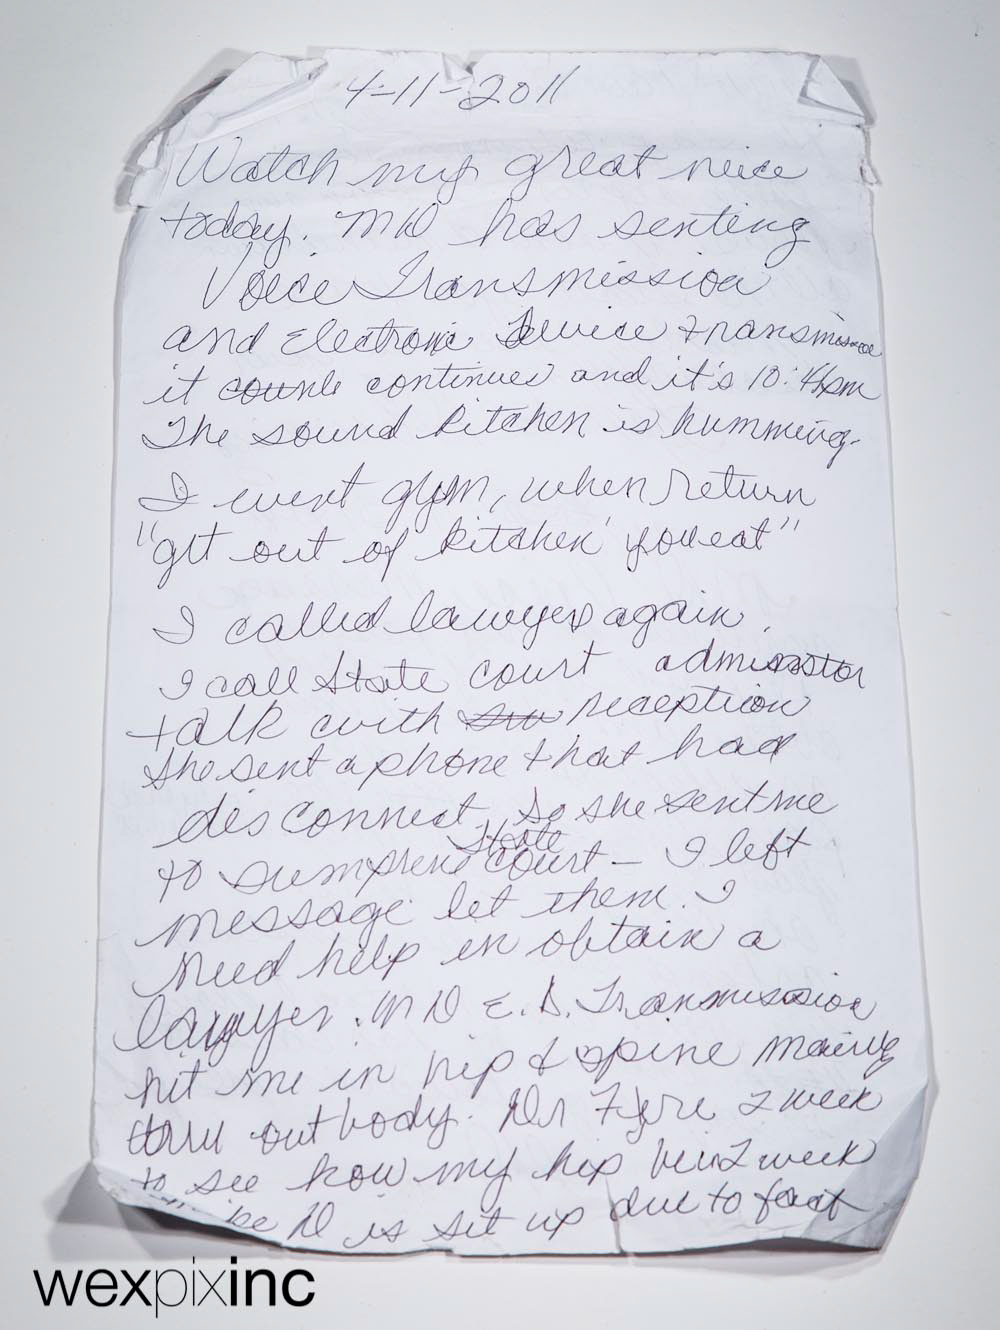 4-11-2011
Watch my great neice
today. MD has senting
Voice Transmission
and Electronic Device transmission
it continues and it's 10:44pm
The sound kitchen is humming.
I went gym, when return
"get out of kitchen you eat"
I called lawyer again.
I call State court
talk with reception
she sent a phone that had
disconnect, so she sent me
to sumpreme State court – I left
message let them. I
need help in obtain a
lawyer. MD E.D. Transmission
hit me in hip & spine
out body. Dr 2 week
to see how my hip 2 week
be D is set up due to fact
wexpixinc